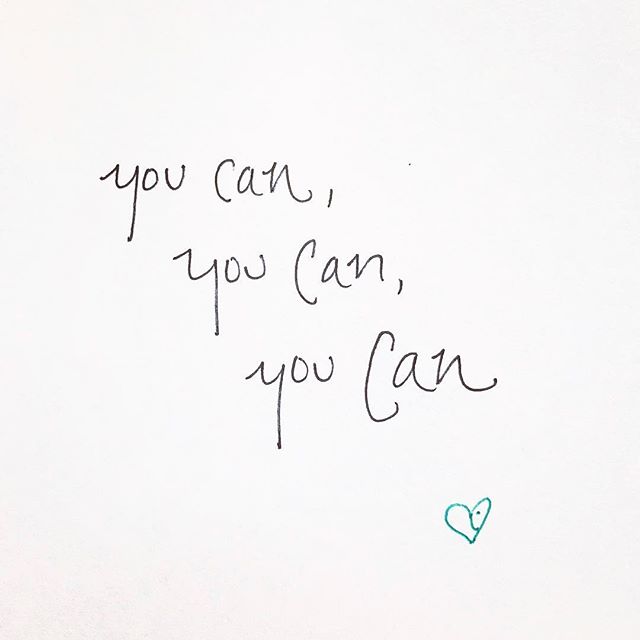 you can,
you can,
you can